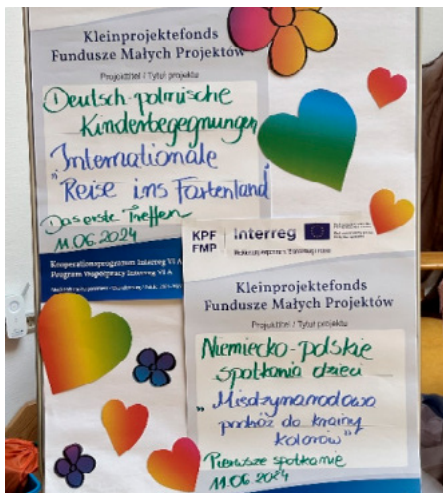 Kleinprojektefonds
Fundusze Małych Projektów
Projekttitel / Tytuł projektu
Deutsch-polnische
Kinderbegegnungen
Internationale
"Reise ins Farbenland"
Das erste Treffen
11.06.2024
Kooperationsprogramm Interreg VI A
Program Współpracy Interreg VI A
KPF
FMP
Interreg
Kleinprojektefonds
Fundusze Małych Projektów
Projekttitel / Tytuł projektu
Niemiecko-polskie
spotkania dzieci
"Międzynarodowa
podróż do krainy
kolorów"
Pierwsze spotkanie
11.06.2024